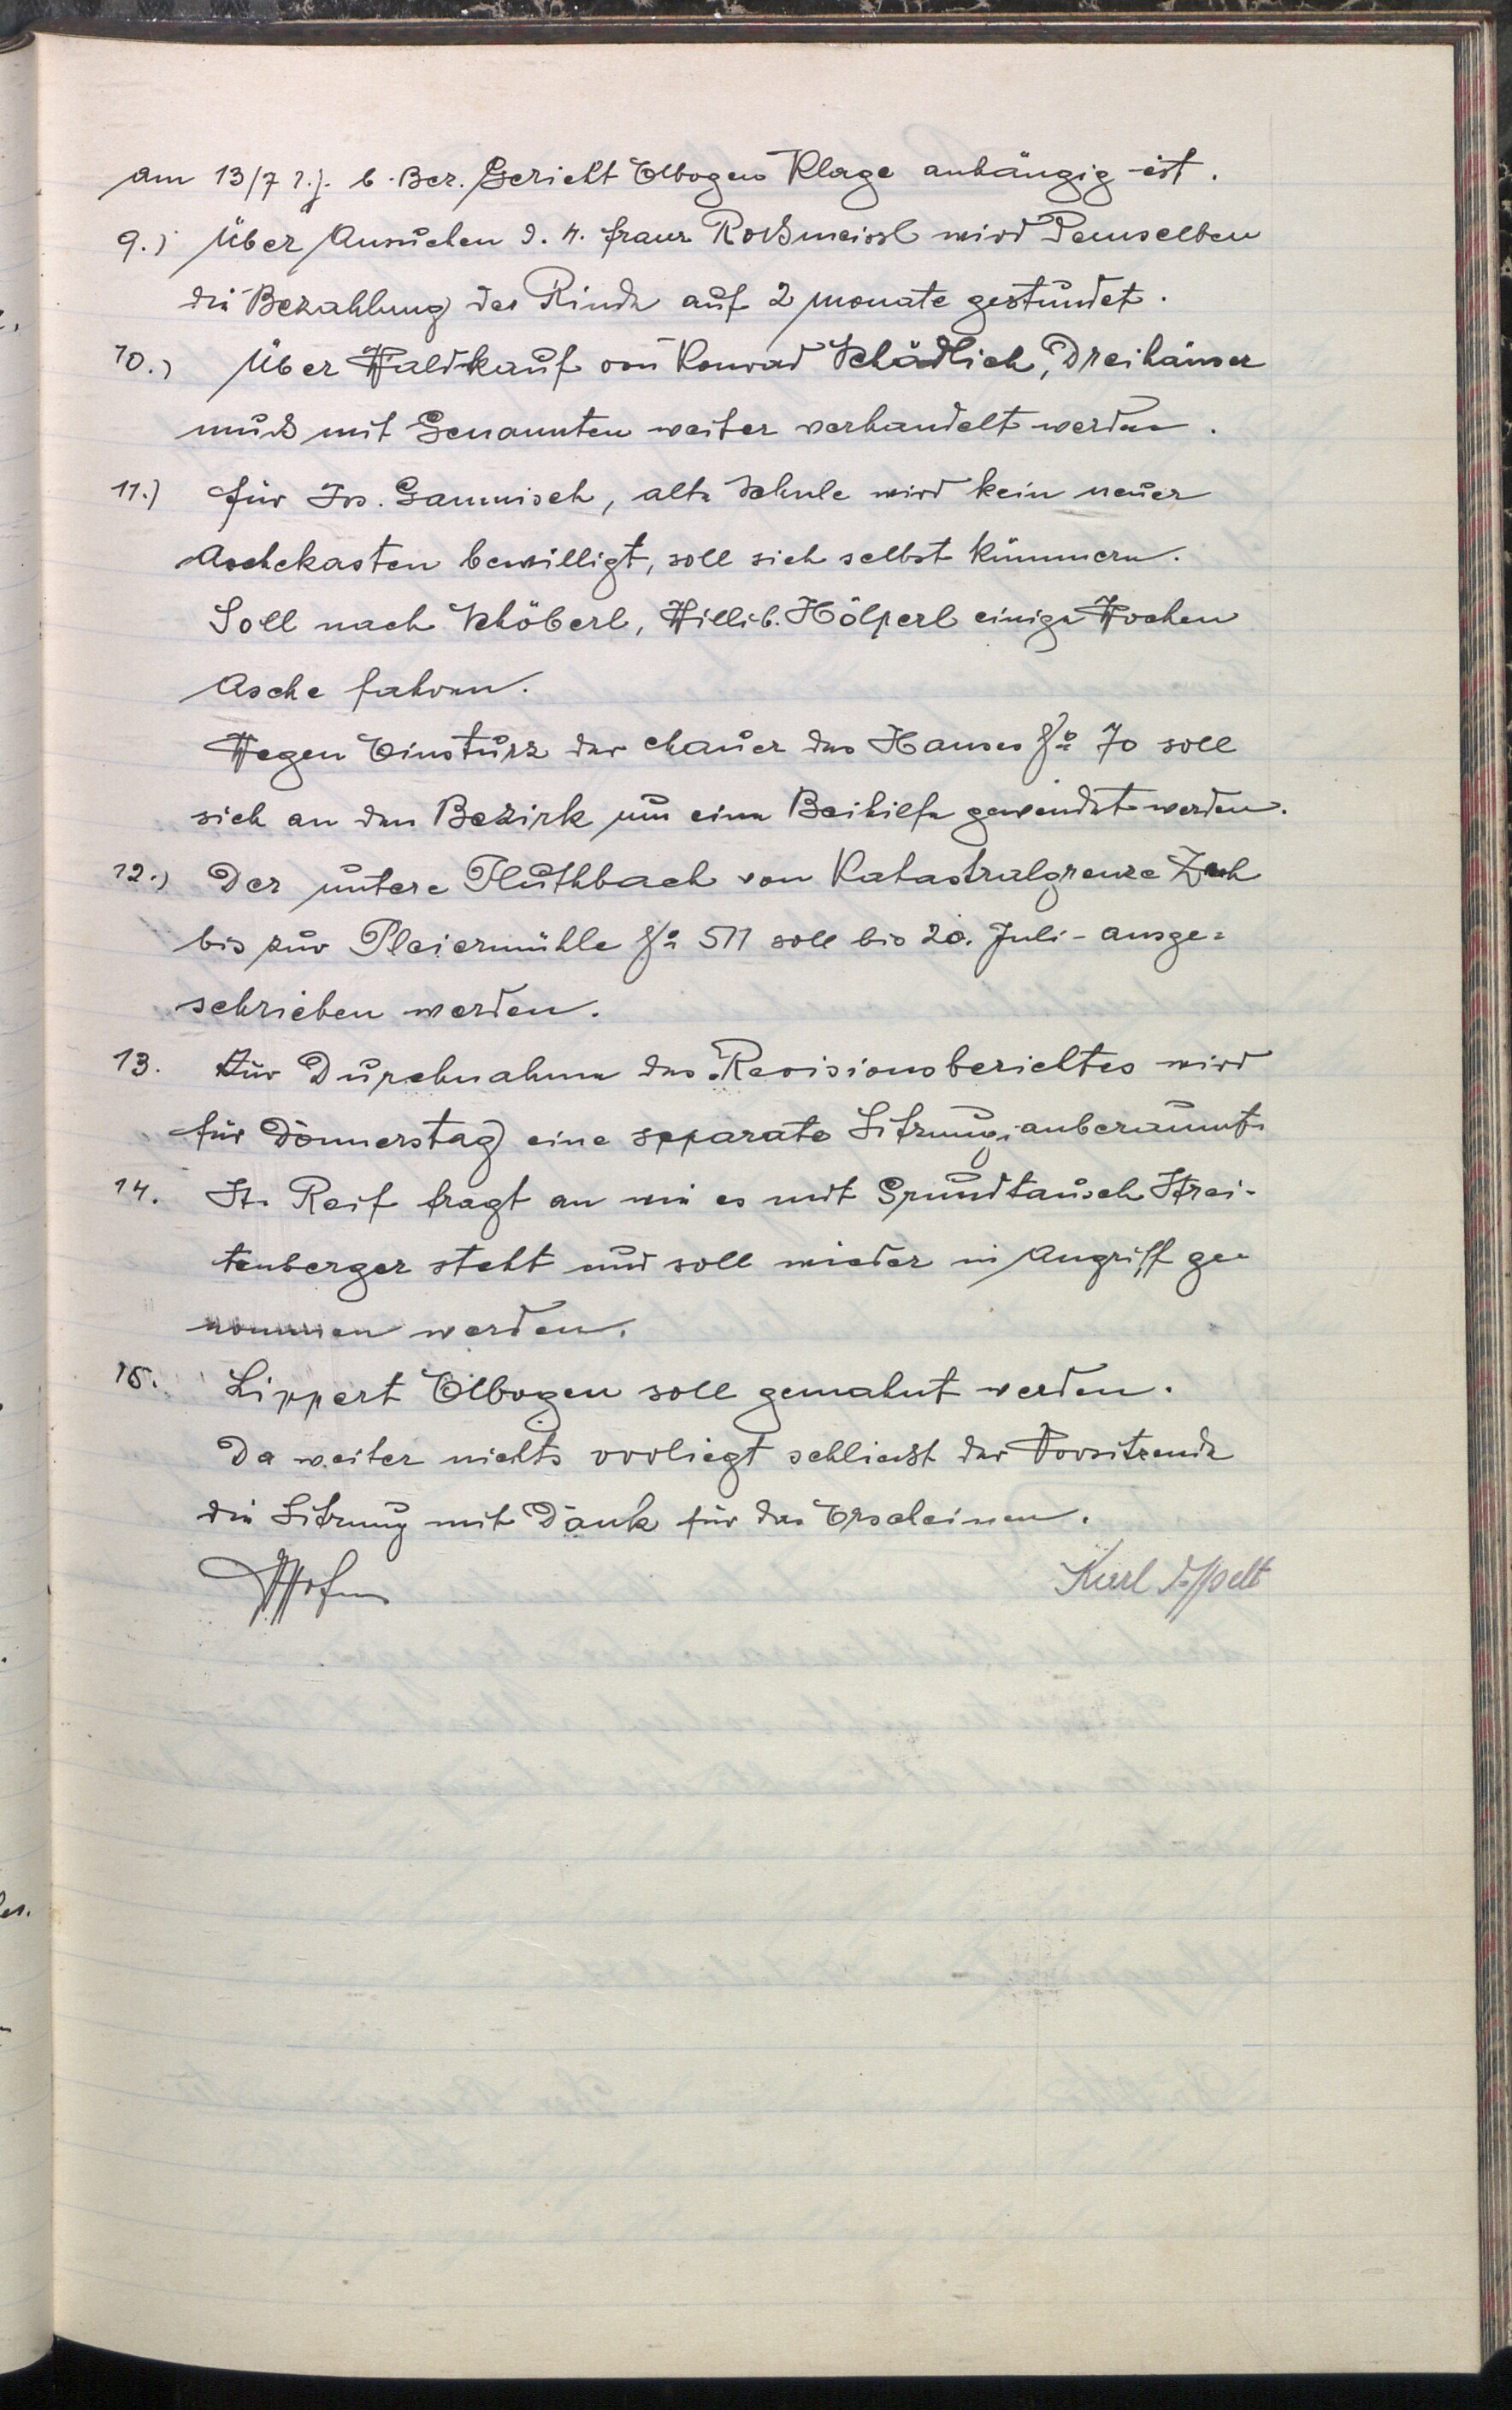 am 13/7 l. j. b. Bez. Gericht Elbogen Klage anhängig ist.
9.) Über Ansuchen d. H. Franz Roßmeissl wird Demselben
die Bezahlung der Rinde auf 2 Monate gestundet.
10.) Über Waldkauf von Konrad Schädlich, Dreihäuser
muß mit Genannten weiter verhandelt werden.
11.) Für Jos. Gammisch, alte Schule wird kein neuer
Aschekasten bewilligt, soll sich selbst kümmern.
Soll nach Schöberl, Willib. Hölperl einige Wochen
Asche fahren.
Wegen Einsturz der Mauer des Hauses No 70 soll
sich an den Bezirk um eine Beihilfe gewendet werden.
12.) Der untere Fluthbach von Katastralgrenze Zech
bis zur Pleiermühle No 511 soll bis 20. Juli ausge=
schrieben werden.
13. Zur Durchnahme des Revisionsberichtes wird
für Donnerstag eine separate Sitzung anberaumt.
14. St. Reif fragt an wie es mit Grundtausch Strei-
tenberger steht und soll wieder in Angriff ge-
nommen werden.
15. Lippert Elbogen soll gemahnt werden.
Da weiter nichts vorliegt schließt der Vorsitzende
die Sitzung mit Dank für das Erscheinen.
Karl Appelt